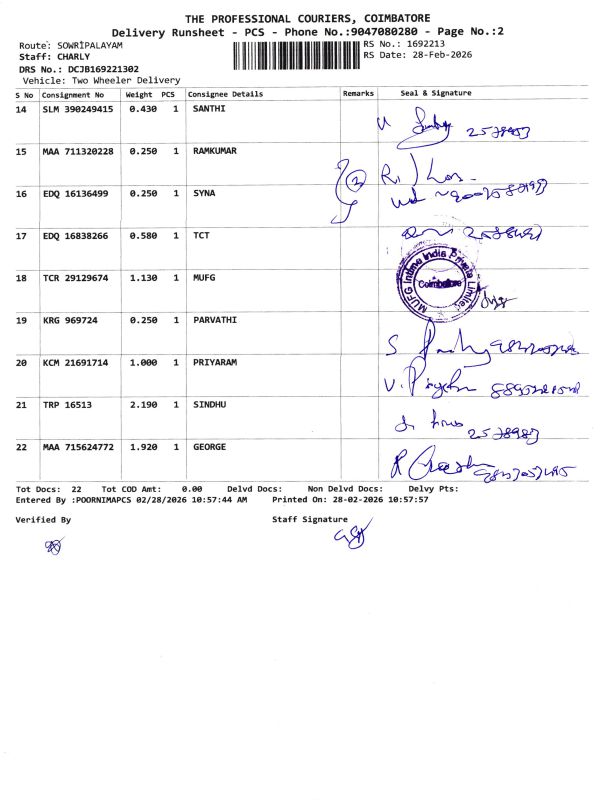 THE PROFESSIONAL COURIERS, COIMBATORE
Delivery Runsheet - PCS - Phone No.:9047080280 - Page No.:2
Route: SOWRIPALAYAM
RS No.: 1692213
Staff: CHARLY
RS Date: 28-Feb-2026
DRS No.: DCJB169221302
Vehicle: Two Wheeler Delivery
S No Consignment No Weight PCS Consignee Details Remarks Seal & Signature
14 SLM 390249415 0.430 1 SANTHI
15 MAA 711320228 0.250 1 RAMKUMAR
16 EDQ 16136499 0.250 1 SYNA
17 EDQ 16838266 0.580 1 TCT
18 TCR 29129674 1.130 1 MUFG
MUFG Intime India Private Limited
Coimbatore
19 KRG 969724 0.250 1 PARVATHI
20 KCM 21691714 1.000 1 PRIYARAM
21 TRP 16513 2.190 1 SINDHU
22 MAA 715624772 1.920 1 GEORGE
Tot Docs: 22 Tot COD Amt: 0.00 Delvd Docs: Non Delvd Docs: Delvy Pts:
Entered By :POORNIMAPCS 02/28/2026 10:57:44 AM Printed On: 28-02-2026 10:57:57
Verified By Staff Signature